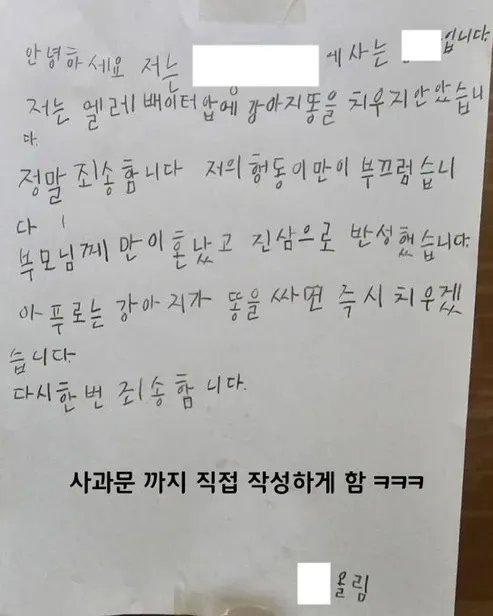 안녕하세요 저는 에 사는 입니다.
저는 엘레베이터 앞에 강아지똥을 치우지안았습니
다.
정말 죄송합니다 저의 행동이만이 부끄럽습니
다
부모님께 만이 혼났고 진삼으로 반성했습니다.
아푸로는 강아지가 똥을 싸면 즉시 치우겠
습니다.
다시한번 죄송합니다.
사과문 까지 직접 작성하게 함 ㅋㅋㅋ
올림